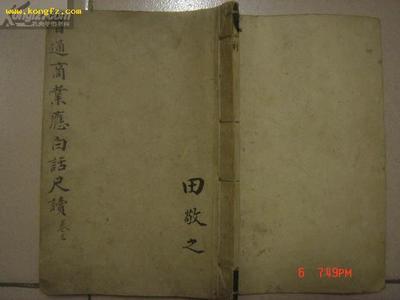 www.kongfz.com
普通商業應白話尺讀
田敬之
6 7:49PM